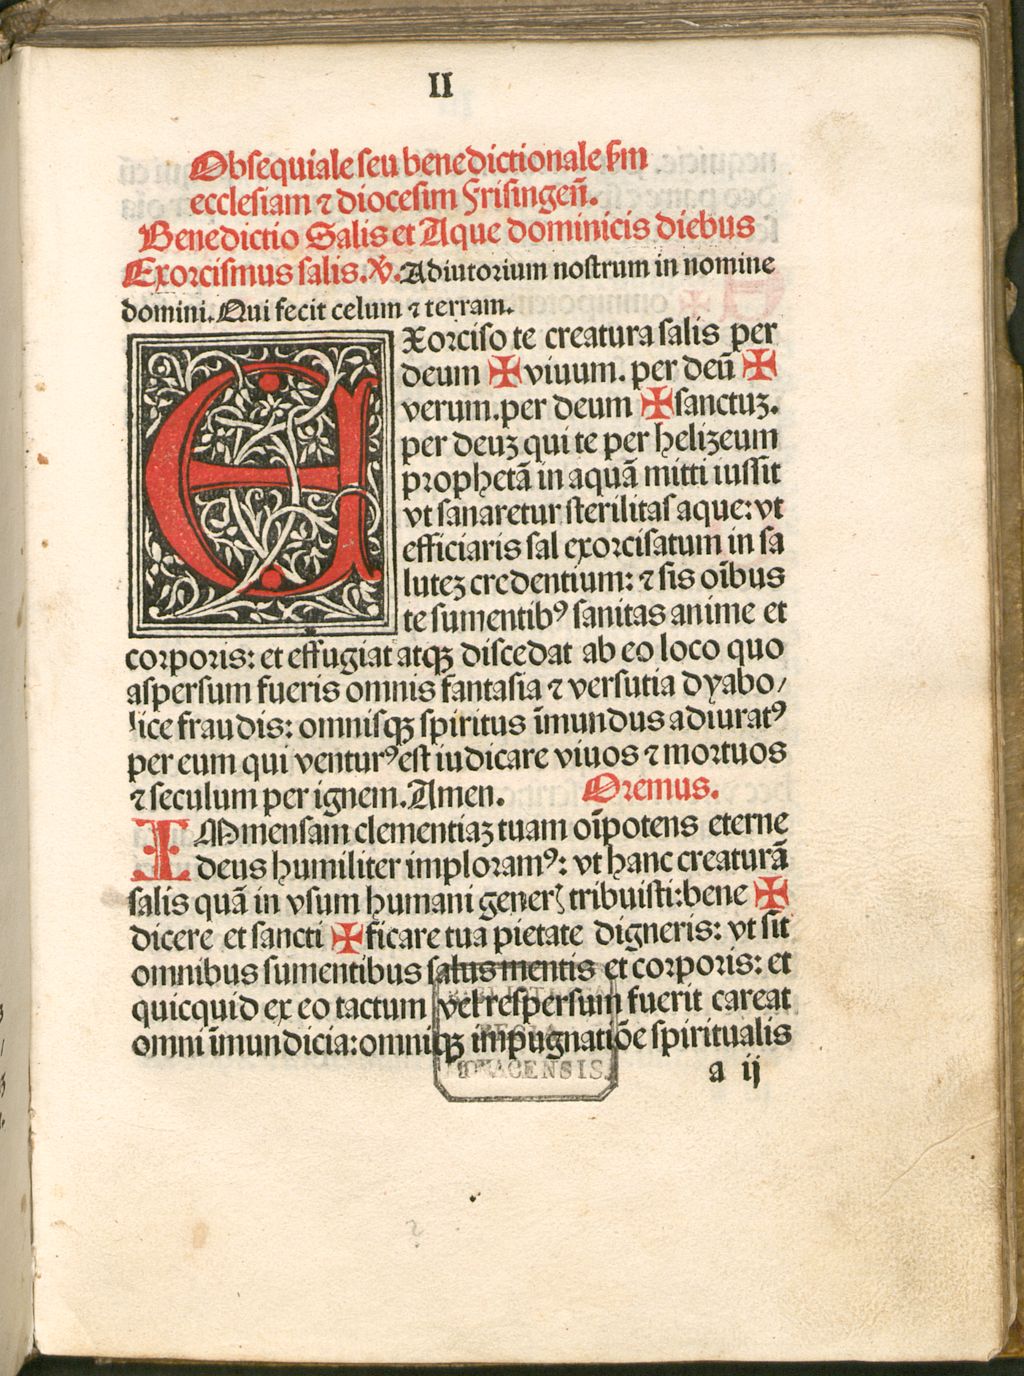 II
Obsequiale seu benedictionale ẜm
ecclesiam ⁊ diocesim Frisingen̄.
Benedictio Salis et Aque dominicis diebus
Exorcismus salis. ℣. Adiutorium nostrum in nomine
domini. Qui fecit celum ⁊ terram.
EXorciso te creatura salis per
deum ✠ viuum. per deū ✠
verum. per deum ✠ sanctuꝫ.
per deuꝫ qui te per helizeum
prophetā in aquā mitti iussit
vt sanaretur sterilitas aque: vt
efficiaris sal exorcisatum in sa
luteꝫ credentium: ⁊ sis oībus
te sumentibꝰ sanitas anime et
corporis: et effugiat atqꝫ discedat ab eo loco quo
aspersum fueris omnis fantasia ⁊ versutia dyabo/
lice fraudis: omnisqꝫ spiritus īmundus adiuratꝰ
per eum qui venturꝰ est iudicare viuos ⁊ mortuos
⁊ seculum per ignem. Amen. Oremus.
IMmensam clementiaꝫ tuam oīpotens eterne
deus humiliter imploramꝰ: vt hanc creaturā
salis quā in vsum humani generꝭ tribuisti: bene ✠
dicere et sancti ✠ ficare tua pietate digneris: vt sit
omnibus sumentibus salus mentis et corporis: et
quicquid ex eo tactum vel respersum fuerit careat
omni īmundicia: omniqꝫ impugnatiōe spiritualis
a ij
BIBLIOTHECA
REGIA
MONACENSIS.